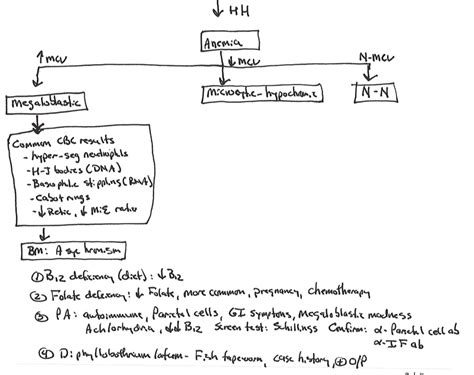 ↓ HH
Anemia
↑ MCV ↓ MCV N-MCV
Megaloblastic Microcytic-hypochromic N-N
Common CBC results
- hyper-seg neutrophils
- H-J bodies (DNA)
- Basophilic stippling (RNA)
- Cabot rings
- ↓ Retic, ↓ M:E ratio
BM: Asynchronism
① B12 deficiency (diet): ↓ B12
② Folate deficiency: ↓ Folate, more common, pregnancy, chemotherapy
③ PA: autoimmune, Parietal cells, GI symptoms, Megaloblastic madness
Achlorhydria, ↓↓ B12 Screen test: Schillings Confirm: α-Parietal cell ab
α-IF ab
④ D. phyllobothrium latum - Fish tapeworm, case history, ⊕ O/P